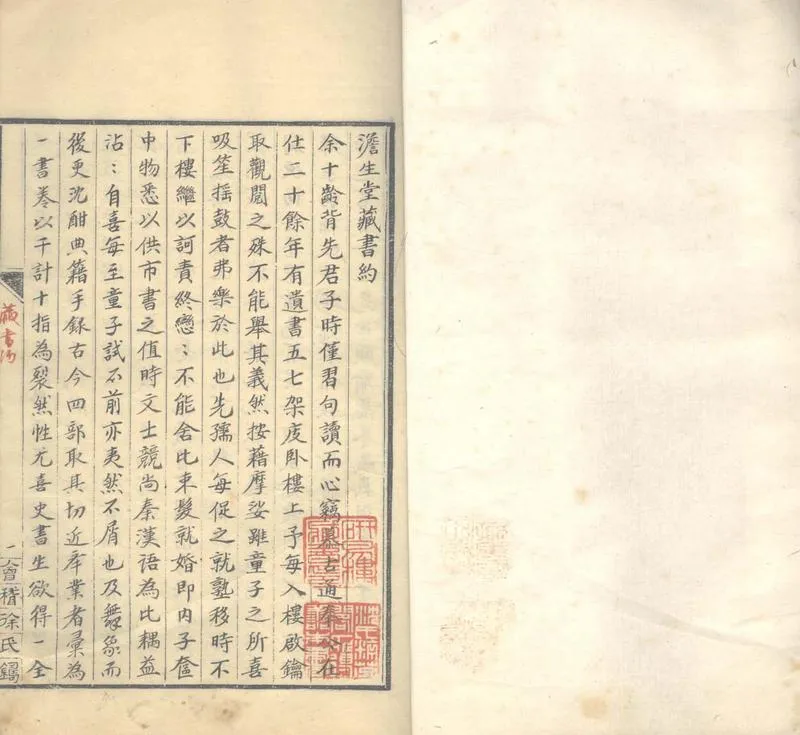 澹生堂藏書約
余十齡背先君子時僅習句讀而心竊慕古通奉公在
仕二十餘年有遺書五七架庋臥樓上予每入樓啟鑰
取觀閱之殊不能舉其義然按藉摩娑雖童子之所喜
吸笙搖鼓者弗樂於此也先孺人每促之就塾移時不
下樓繼以訶責終戀：不能舍比束髮就婚即內子奩
中物悉以供市書之值時文士競尚秦漢語為比耦益
沾：自喜每至童子試不前亦夷然不屑也及舞象而
後更沈酣典籍手錄古今四部取其切近舉業者彙為
一書卷以千計十指為裂然性尤喜史書生欲得一全
藏書約
會稽徐氏